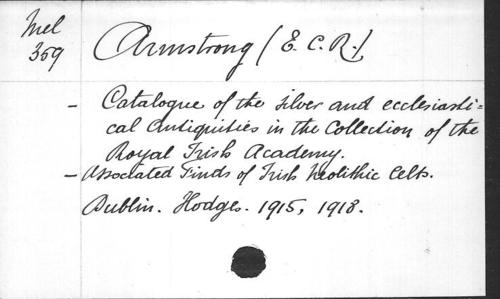 Mel
359
Armstrong (E. C. R.),
- Catalogue of the silver and ecclesiasti=
cal Antiquities in the Collection of the
Royal Irish Academy.
- Associated Finds of Irish Neolithic Celts.
Dublin. Hodges. 1915, 1918.